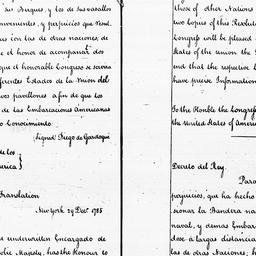 sus Buques, y los de sus vasallos
convenientes, y perjuicios que Vend.
con las de otras naciones; de
el honor de acompañar dos
que el honorable Congreso se sirva
diferentes Estados de la Union del
pavellones a fin de que los
de las Embarcaciones Americanas
Conocimiento.
Signed Diego de Gardoqui
de los
America }
Translation
New York 29 Decr. 1785
underwritten Encargado de
Majesty, has the Honour to
those of other Nations
two Copies of this Resolut
Congress will be pleased
States of the Union the
end that the respective
have precise Information
To the Honble the Congress
the United States of America
Decreto del Rey.
Para
perjuicios, que ha hecho
sionar la Bandera na
naval, y demas Embar
dose á largas distancias
las de otras Naciones; he